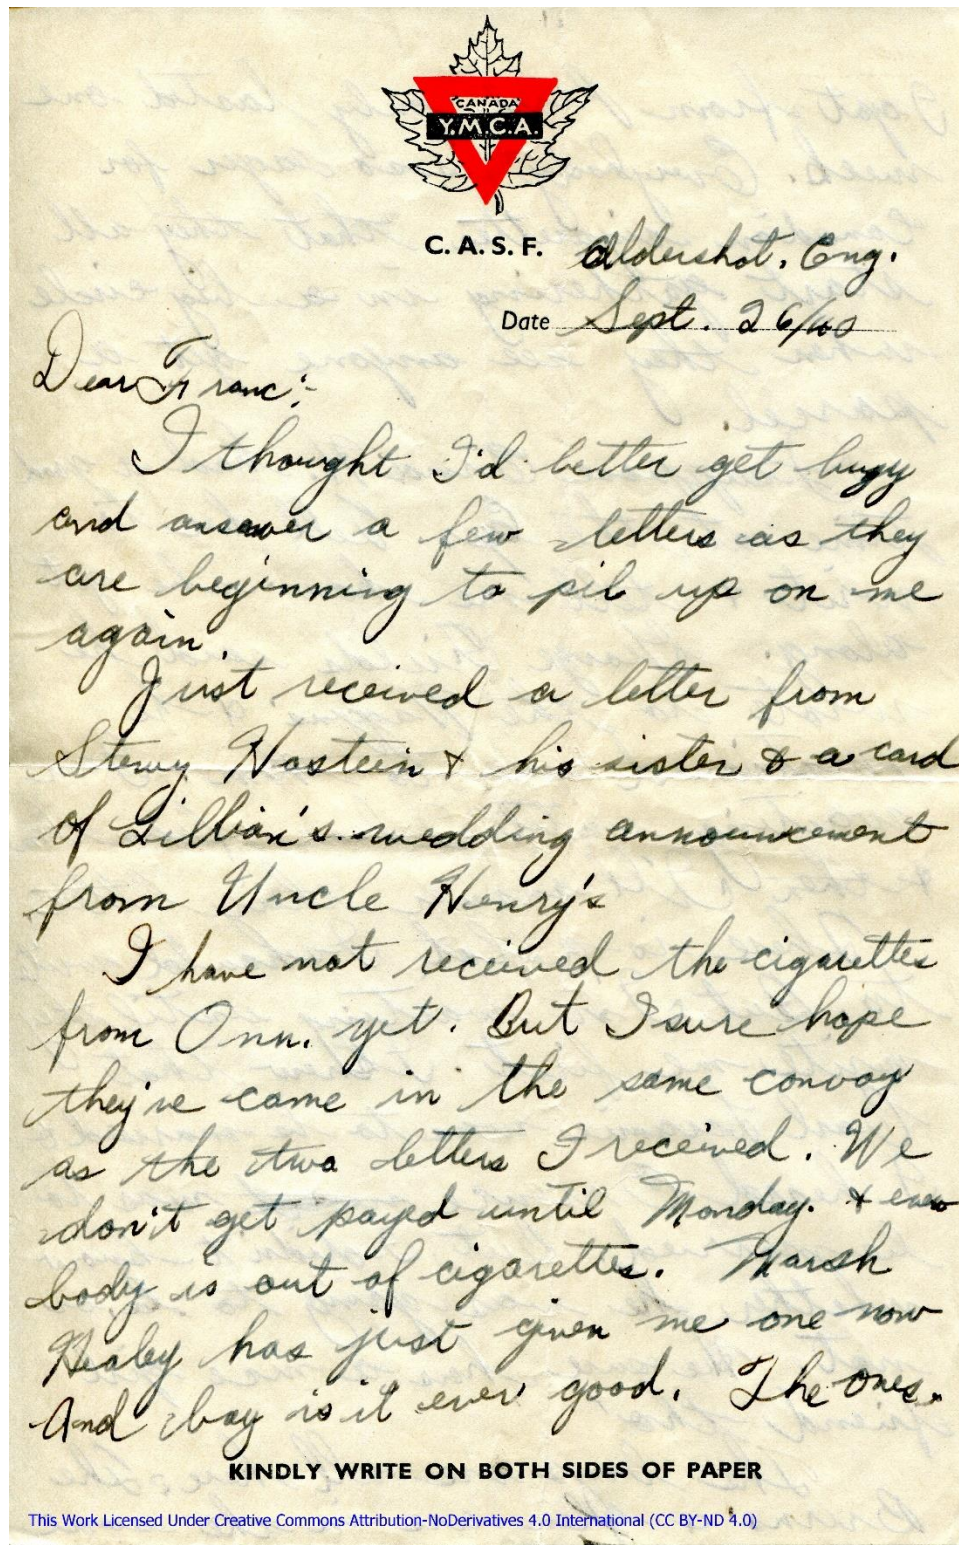 CANADA
Y.M.C.A.
C. A. S. F. Aldershot. Eng.
Date Sept. 26/40
Dear Franc:-
I thought I'd better get busy
and answer a few letters as they
are beginning to pil up on me
again.
Just received a letter from
Stewy Hostein & his sister & a card
of Lillian's wedding announcement
from Uncle Henry's
I have not received the cigarettes
from Onn. yet. But I sure hope
they've came in the same convoy
as the two letters I received. We
don't get payed until Monday. & every
body is out of cigarettes. Marsh
Healey has just given me one now
And boy is it ever good. The ones.
KINDLY WRITE ON BOTH SIDES OF PAPER
This Work Licensed Under Creative Commons Attribution-NoDerivatives 4.0 International (CC BY-ND 4.0)